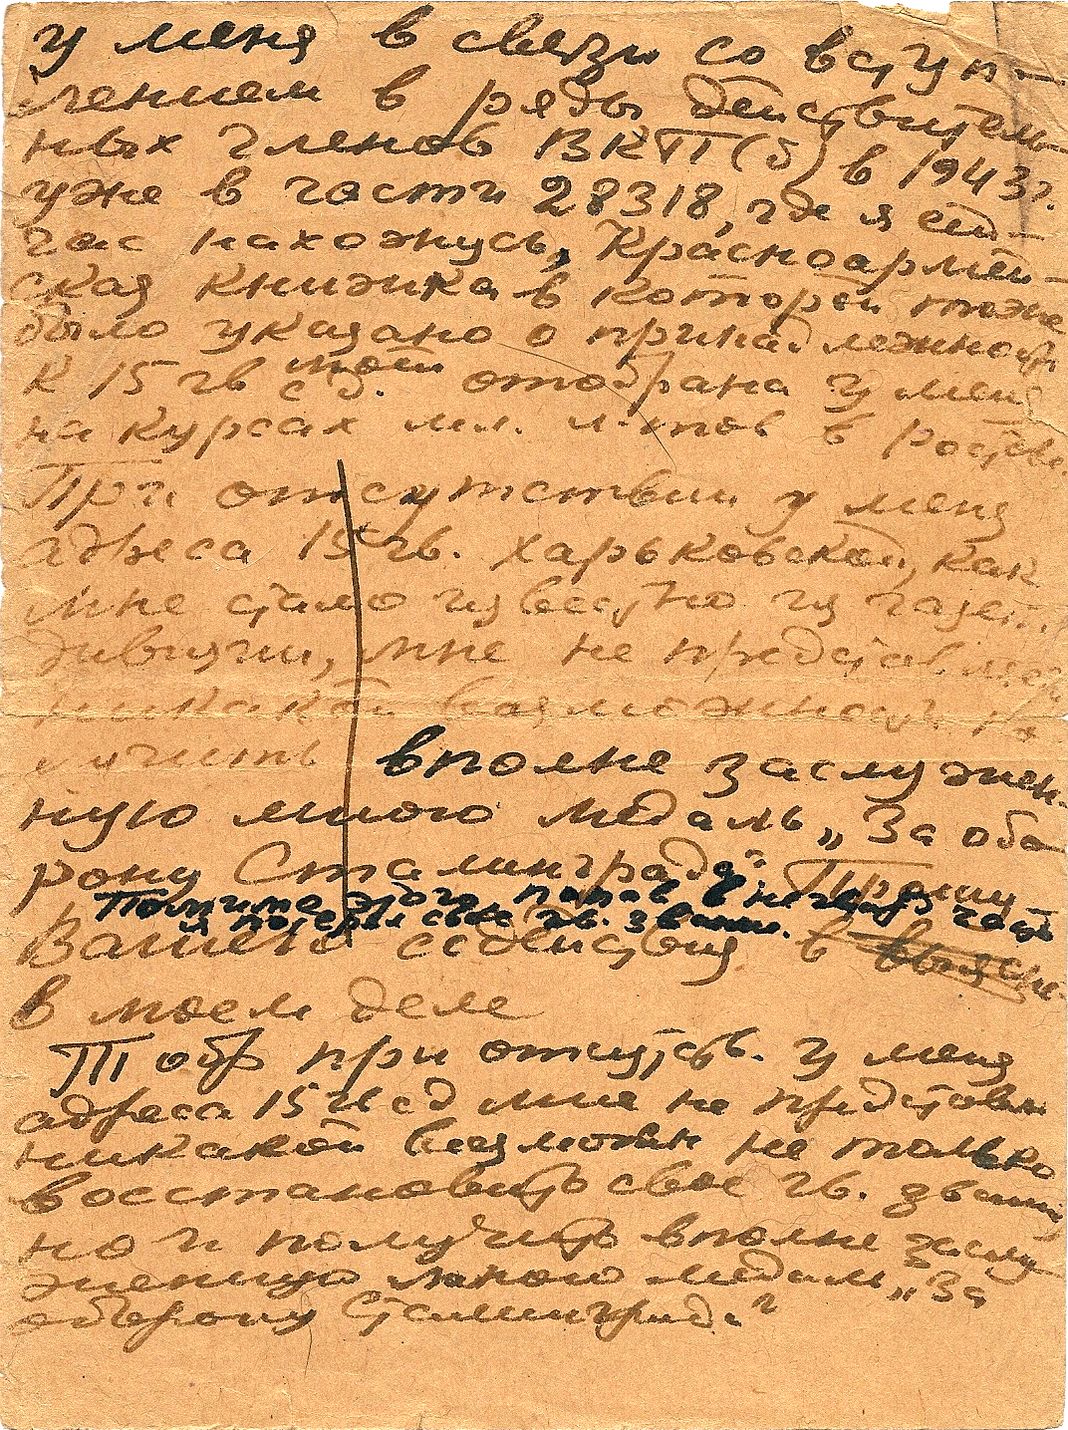 у меня в связи со вступ-
лением в ряды действитель-
ных членов ВКП(б) в 1943 г.
уже в части 28318, где я сей-
час нахожусь, Красноармей-
ская книжка в которой тоже
было указано о принадлежности
моей
к 15 гв с д. отобрана у меня
на курсах мл. л-тов в
При отсутствии у меня
адреса 15 гв. Харьковской, как
мне стало известно из газет
дивизии, мне не представляется
никакой возможности по-
лучить вполне заслужен-
ную мною медаль „За обо-
рону Сталинграда". Прошу
Помимо этого попав в не гвард. часть
я потерял свое гв. звание.
Вашего содействия в
в моем деле
Т обр при отсутств. у меня
адреса 15 гв сд мне не представл
никакой возможн не только
восстановить свое гв. звание
но и получить вполне заслу
женную мною медаль „За
оборону Сталинграда"